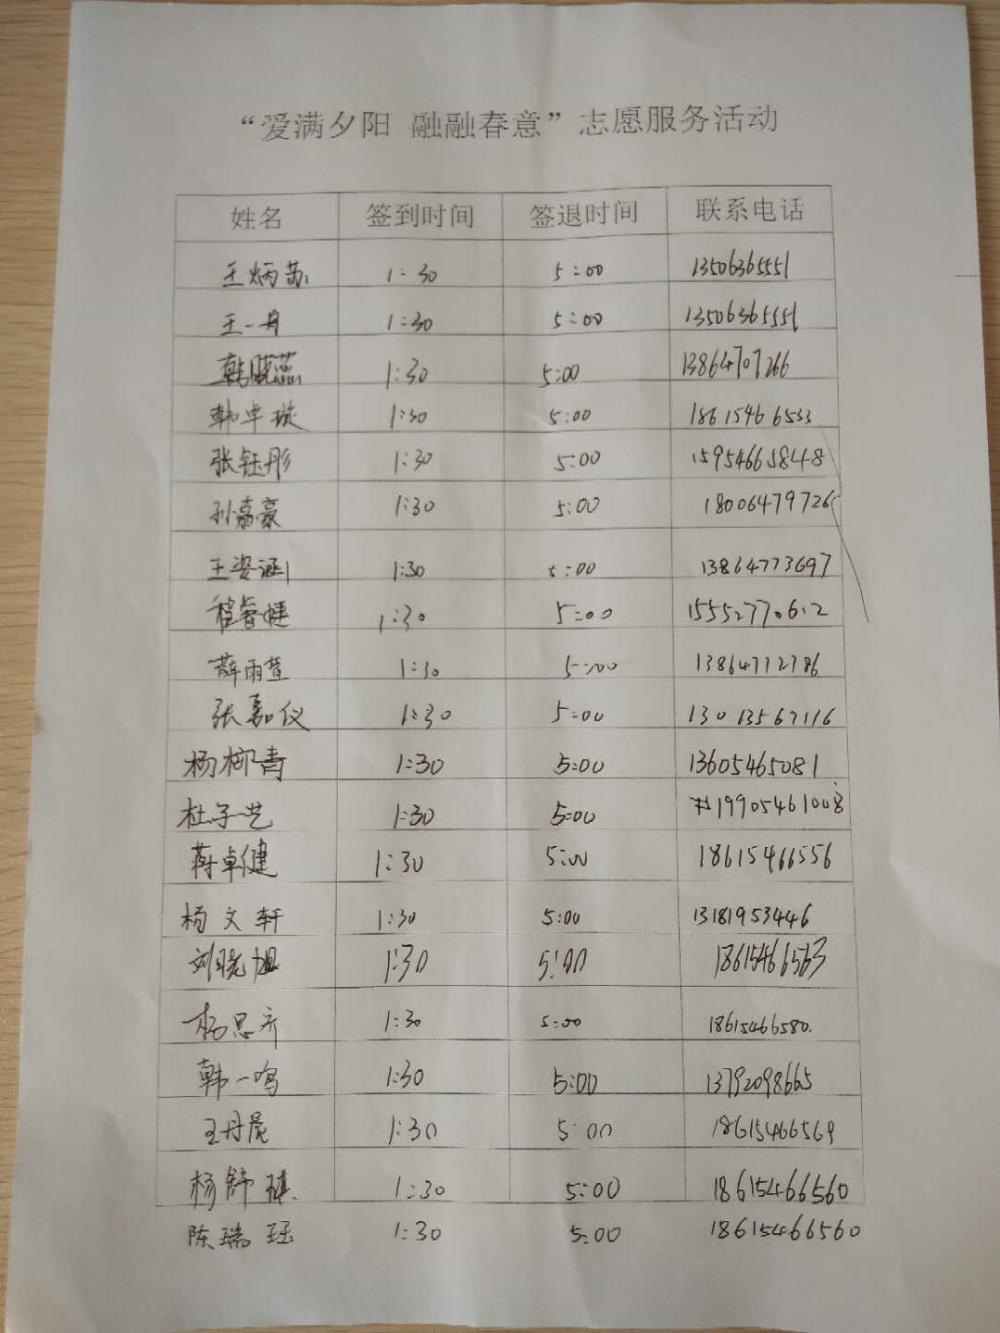 “爱满夕阳 融融春意”志愿服务活动
姓名 签到时间 签退时间 联系电话
王炳荪 1:30 5:00 13506365551
王一丹 1:30 5:00 13506365551
韩晓蕊 1:30 5:00 13864707266
韩卓璇 1:30 5:00 18615466533
张钰彤 1:30 5:00 15954665848
孙嘉豪 1:30 5:00 18006479726
王姿涵 1:30 5:00 13864773697
程睿婕 1:30 5:00 15552770612
薛雨萱 1:30 5:00 13864712786
张嘉仪 1:30 5:00 13013567116
杨柳青 1:30 5:00 13605465081
杜子艺 1:30 5:00 19905461008
蒋卓健 1:30 5:00 18615466556
杨文轩 1:30 5:00 13181953446
刘晓旭 1:30 5:00 18615466563
杨思齐 1:30 5:00 18615466580.
韩一鸣 1:30 5:00 13792098665
王丹晨 1:30 5:00 18615466569
杨舒祺 1:30 5:00 18615466560
陈瑞珏 1:30 5:00 18615466560